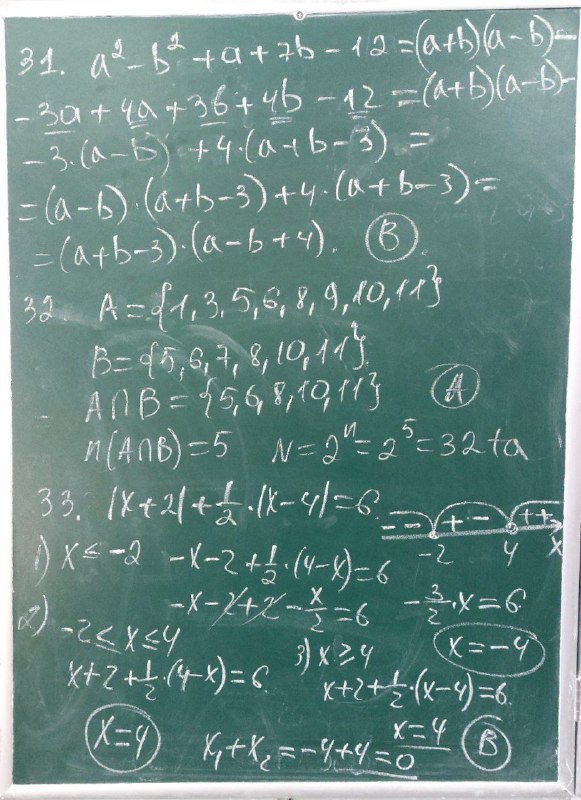 31. a² - b² + a + 7b - 12 = (a+b)(a-b) -
- 3a + 4a + 3b + 4b - 12 = (a+b)(a-b) -
- 3·(a-b) + 4·(a+b-3) =
= (a-b)·(a+b-3) + 4·(a+b-3) =
= (a+b-3)·(a-b+4). B
32 A = {1, 3, 5, 6, 8, 9, 10, 11}
B = {5, 6, 7, 8, 10, 11}
A∩B = {5, 6, 8, 10, 11} A
n(A∩B) = 5 N = 2ⁿ = 2⁵ = 32 ta
33. |x+2| + 1/2·|x-4| = 6
- - + - + +
-2 4 x
1) x ≤ -2 -x-2+1/2·(4-x)=6
-x-2+2-x/2=6 -3/2·x=6
2) -2≤x≤4 3) x≥4 x=-4
x+2+1/2·(4-x)=6 x+2+1/2·(x-4)=6
x=4 x=4
x₁+x₂=-4+4=0 B